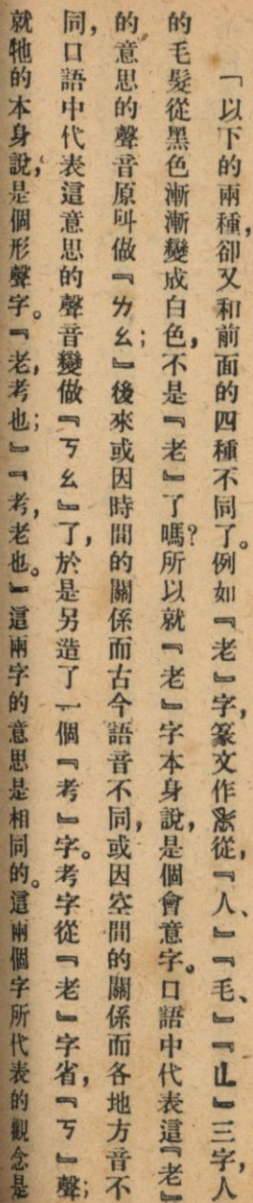 「以下的兩種，卻又和前面的四種不同了。例如『老』字，篆文作從，『人、』『毛、』『𠤎』三字，人
的毛髮從黑色漸漸變成白色，不是『老』了嗎？所以就『老』字本身說，是個會意字。口語中代表這『老』
的意思的聲音原叫做『ㄌㄠ；』後來或因時間的關係而古今語音不同，或因空間的關係而各地方音不
同，口語中代表這意思的聲音變做『ㄎㄠ』了，於是另造了一個『考』字。考字從『老』字省，『丂』聲；
就牠的本身說，是個形聲字。『老，考也；』『考，老也。』這兩字的意思是相同的。這兩個字所代表的觀念是